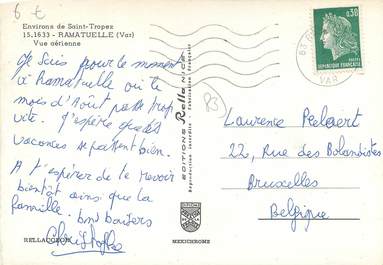 6 €
Environs de Saint-Tropez
15.1633 - RAMATUELLE (Var)
Vue aérienne
Je suis pour le moment
à Ramatuelle où le
mois d'Août passe trop
vite. J'espère que tes
vacances se passent bien.
A l'espérer de te revoir
bientôt ainsi que la
famille. bons baisers
Christophe
EDITIONS Rella NICE
Reproduction Interdite
MEXICHROME
83
VAR
0,30
REPUBLIQUE FRANÇAISE
83
Laurence
22, Rue des Bolandistes
Bruxelles
Belgique